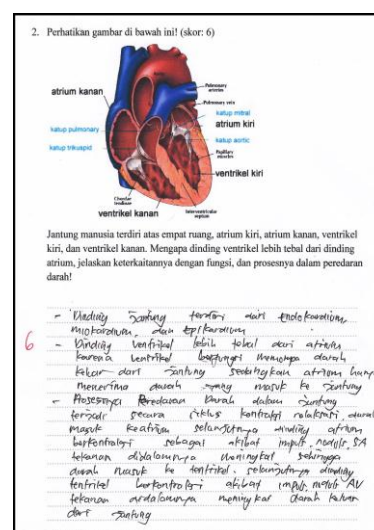 2. Perhatikan gambar di bawah ini! (skor: 6)
atrium kanan
Pulmonary arteries
Pulmonary vein
katup mitral
atrium kiri
katup pulmonary
katup aortic
katup trikuspid
Papillary muscles
ventrikel kiri
Chordae tendineae
Interventricular septum
ventrikel kanan
Jantung manusia terdiri atas empat ruang, atrium kiri, atrium kanan, ventrikel
kiri, dan ventrikel kanan. Mengapa dinding ventrikel lebih tebal dari dinding
atrium, jelaskan keterkaitannya dengan fungsi, dan prosesnya dalam peredaran
darah!
6
- Dinding Jantung terdiri dari Endokardium,
miokardium, dan Epikardium
- Dinding ventrikel lebih tebal dari atrium
karena ventrikel berfungsi memompa darah
keluar dari jantung sedangkan atrium hanya
menerima darah yang masuk ke jantung
- Prosesnya Peredaran Darah dalam Jantung
terjadi secara siklus kontraksi relaksasi, darah
masuk keatrium selanjutnya dinding atrium
berkontraksi sebagai akibat impuls nodus SA
tekanan didalamnya meningkat sehingga
darah masuk ke ventrikel. selanjutnya dinding
ventrikel berkontraksi akibat impuls nodus AV
tekanan didalamnya meningkat darah keluar
dari jantung